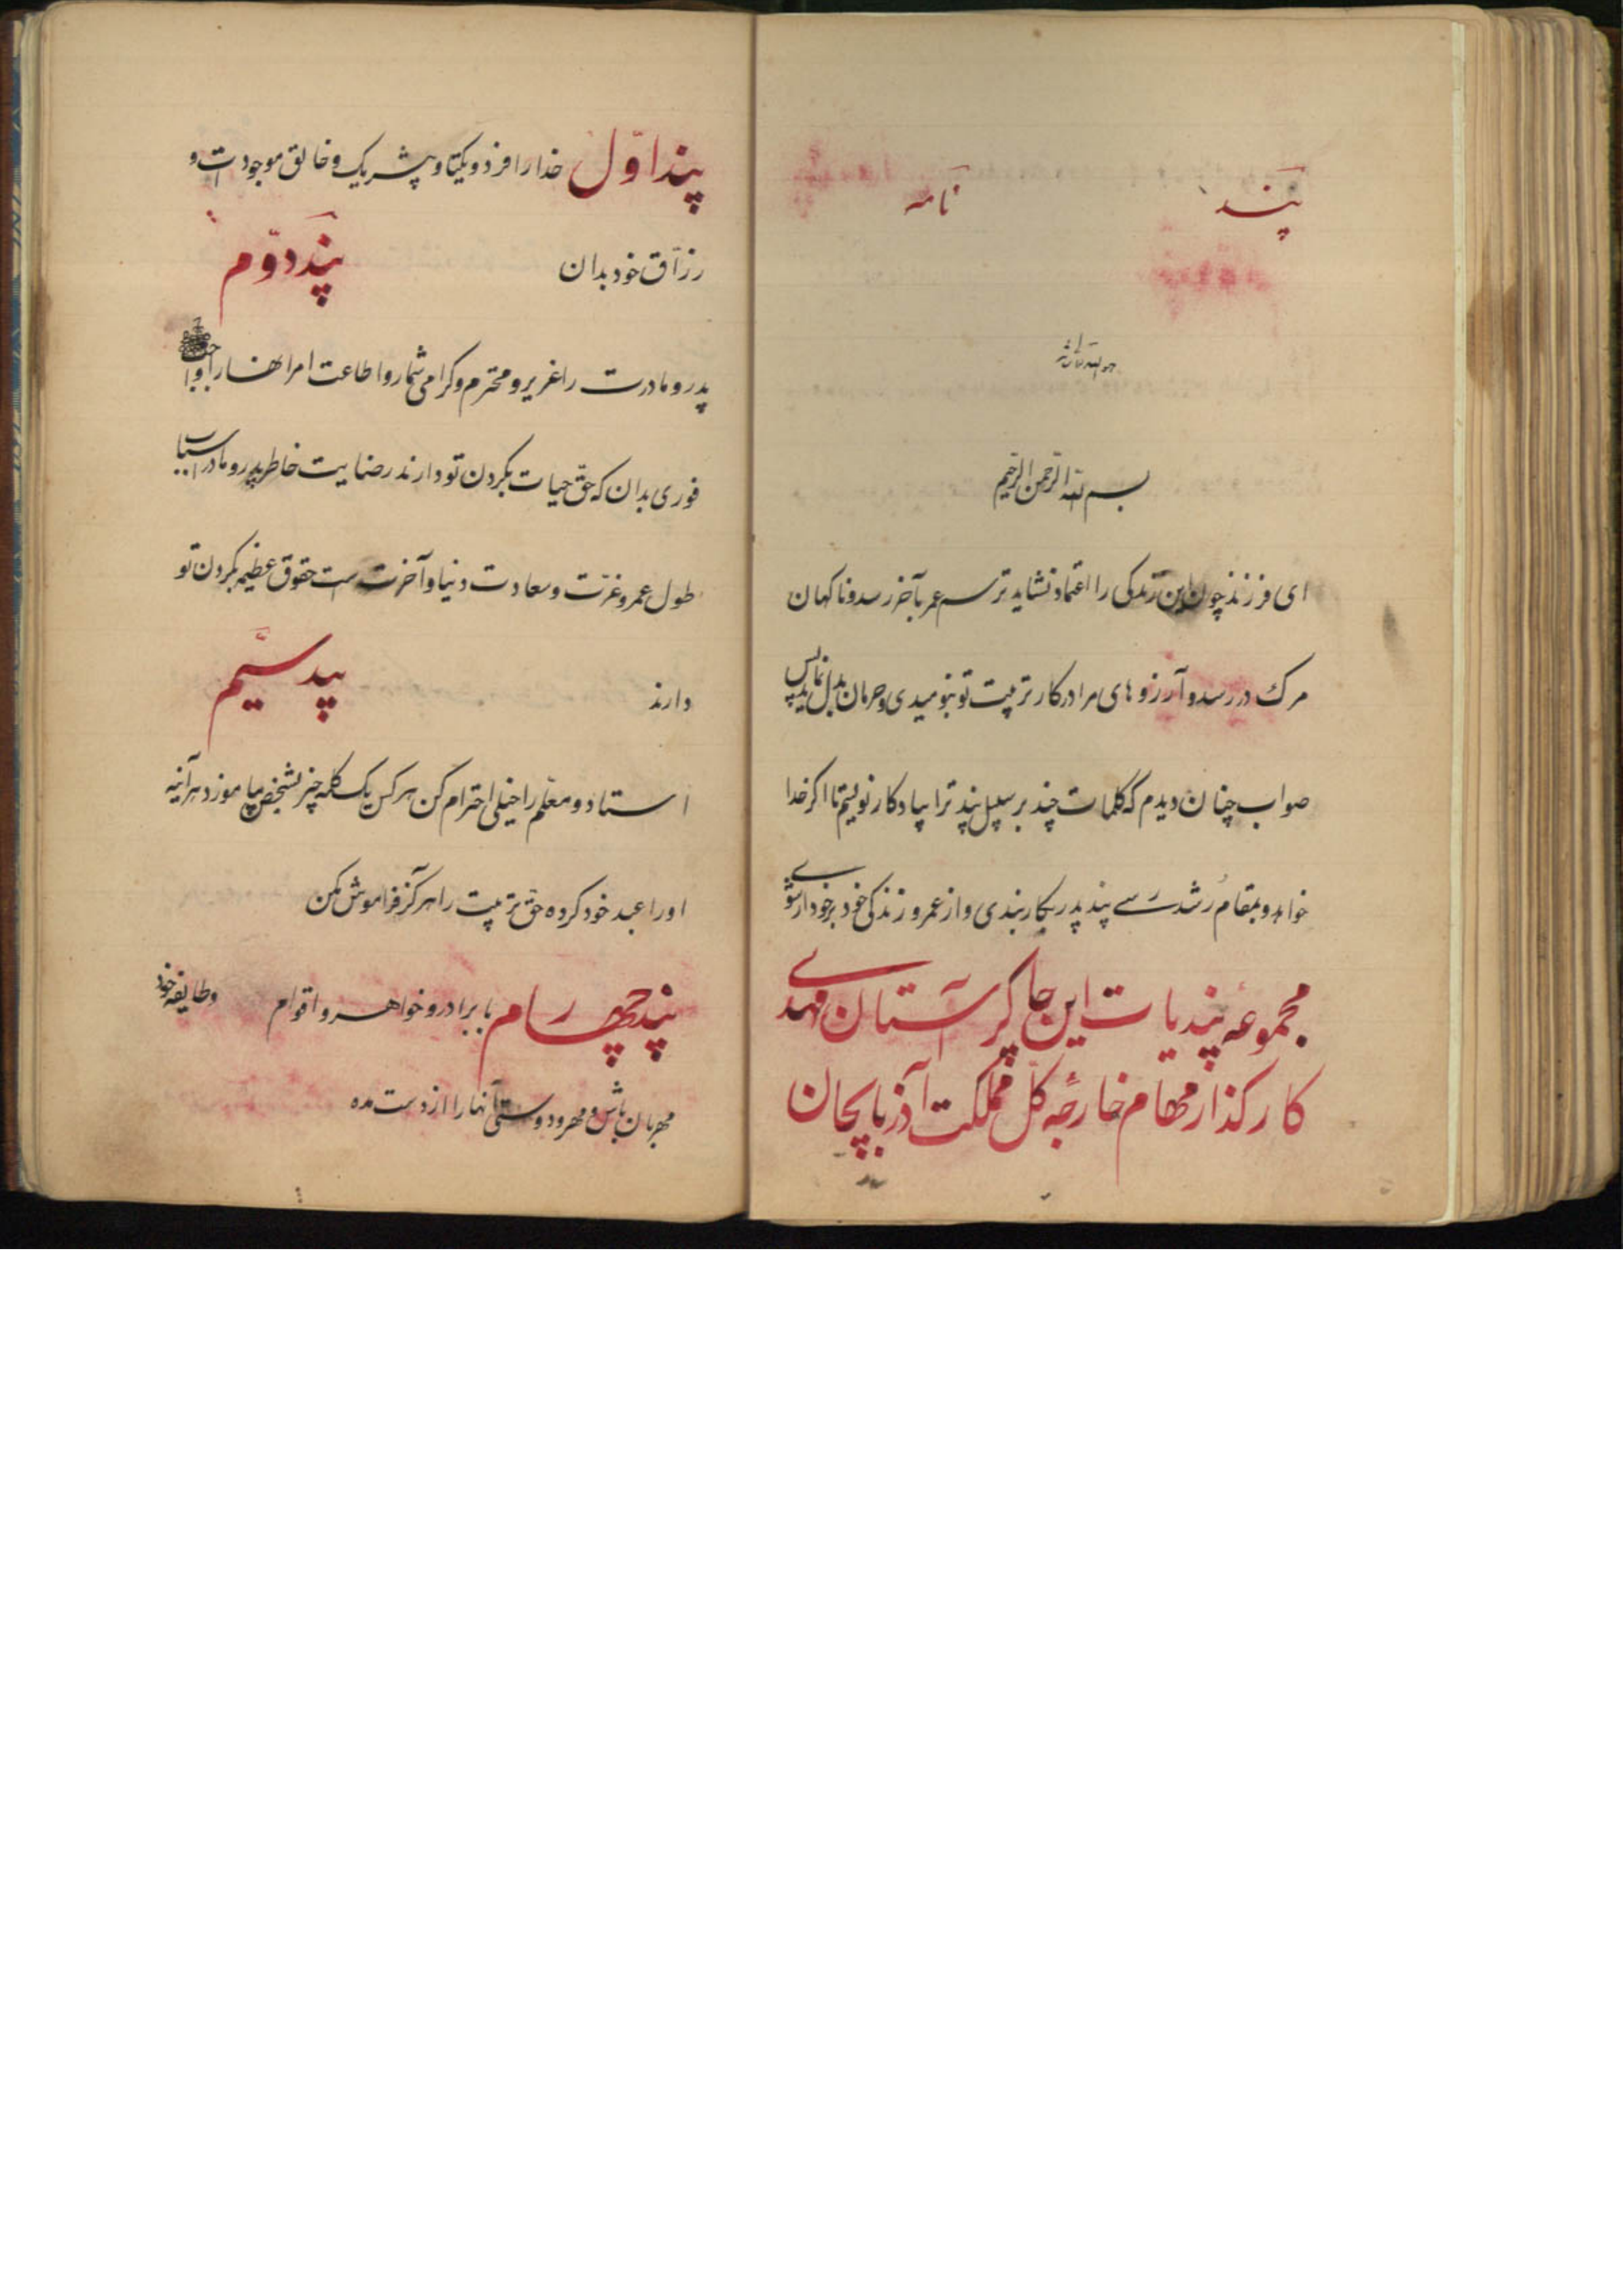 پند نامه
هو الله تعالی شانه
بسم الله الرحمن الرحیم
ای فرزند چون این زندگی را اعتماد نشاید ترسم عمر بآخر رسد و ناکهان
مرک در رسد و آرزوهای مرا در کار تربیت تو بنومیدی و حرمان بدل نماید پس
صواب چنان دیدم که کلمات چند بر سبیل پند ترا بیادکار نویسم تا اکر خدا
خواهد و بمقام رشد رسی پند پدر بکار بندی و از عمر و زندکی خود برخوردار شوی
مجموعه پندیات این چاکر آستان مهدی
کارکذار مهام خارجه کل مملکت آذربایجان
پند اوّل خدا را فرد و یکتا و بیشریک و خالق موجودات و
رزّاق خود بدان پند دوّم
پدر و مادرت را عزیز و محترم و کرامی شمار و اطاعت امر انها را واجب
فوری بدان که حقّ حیات بکردن تو دارند رضایت خاطر پدر و مادر اسباب
طول عمر و عزّت و سعادت دنیا و آخرت است حقوق عظیمه بکردن تو
دارند پند سیّم
استاد و معلّم را خیلی احترام کن هر کس یک کلمه چیز بشخص بیاموزد هرآینه
او را عبد خود کرده حقّ تربیت را هرکز فراموش مکن
پند چهارم با برادر و خواهر و اقوام و طایفه خود
مهربان باش و مهر و دوستی آنها را از دست مده